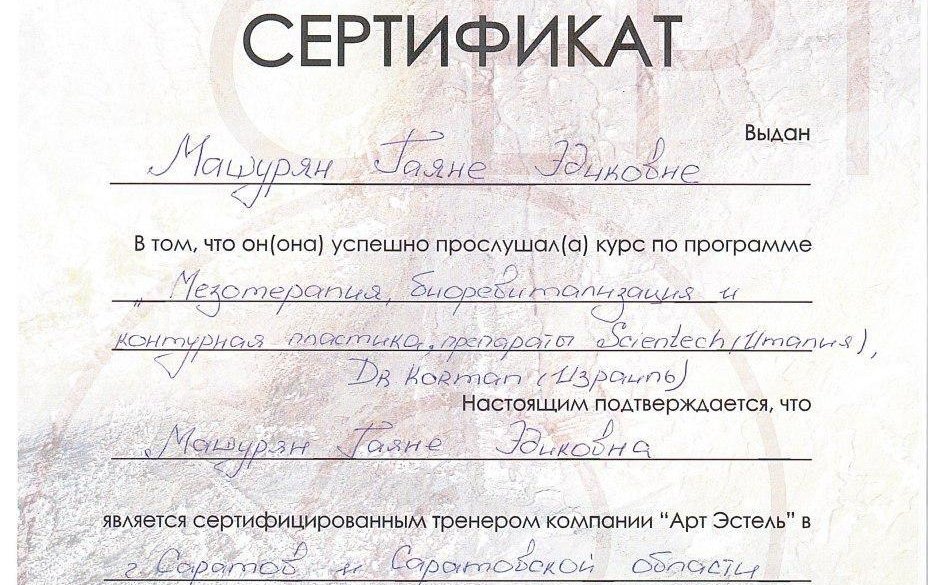 СЕРТИФИКАТ
Выдан
Машурян Гаяне Эдиковне
В том, что он(она) успешно прослушал(а) курс по программе
„Мезотерапия, биоревитализация и
контурная пластика, препараты Scientech (Италия),
DR Korman (Израиль)
Настоящим подтверждается, что
Машурян Гаяне Эдиковна
является сертифицированным тренером компании “Арт Эстель” в
г. Саратов и Саратовской области